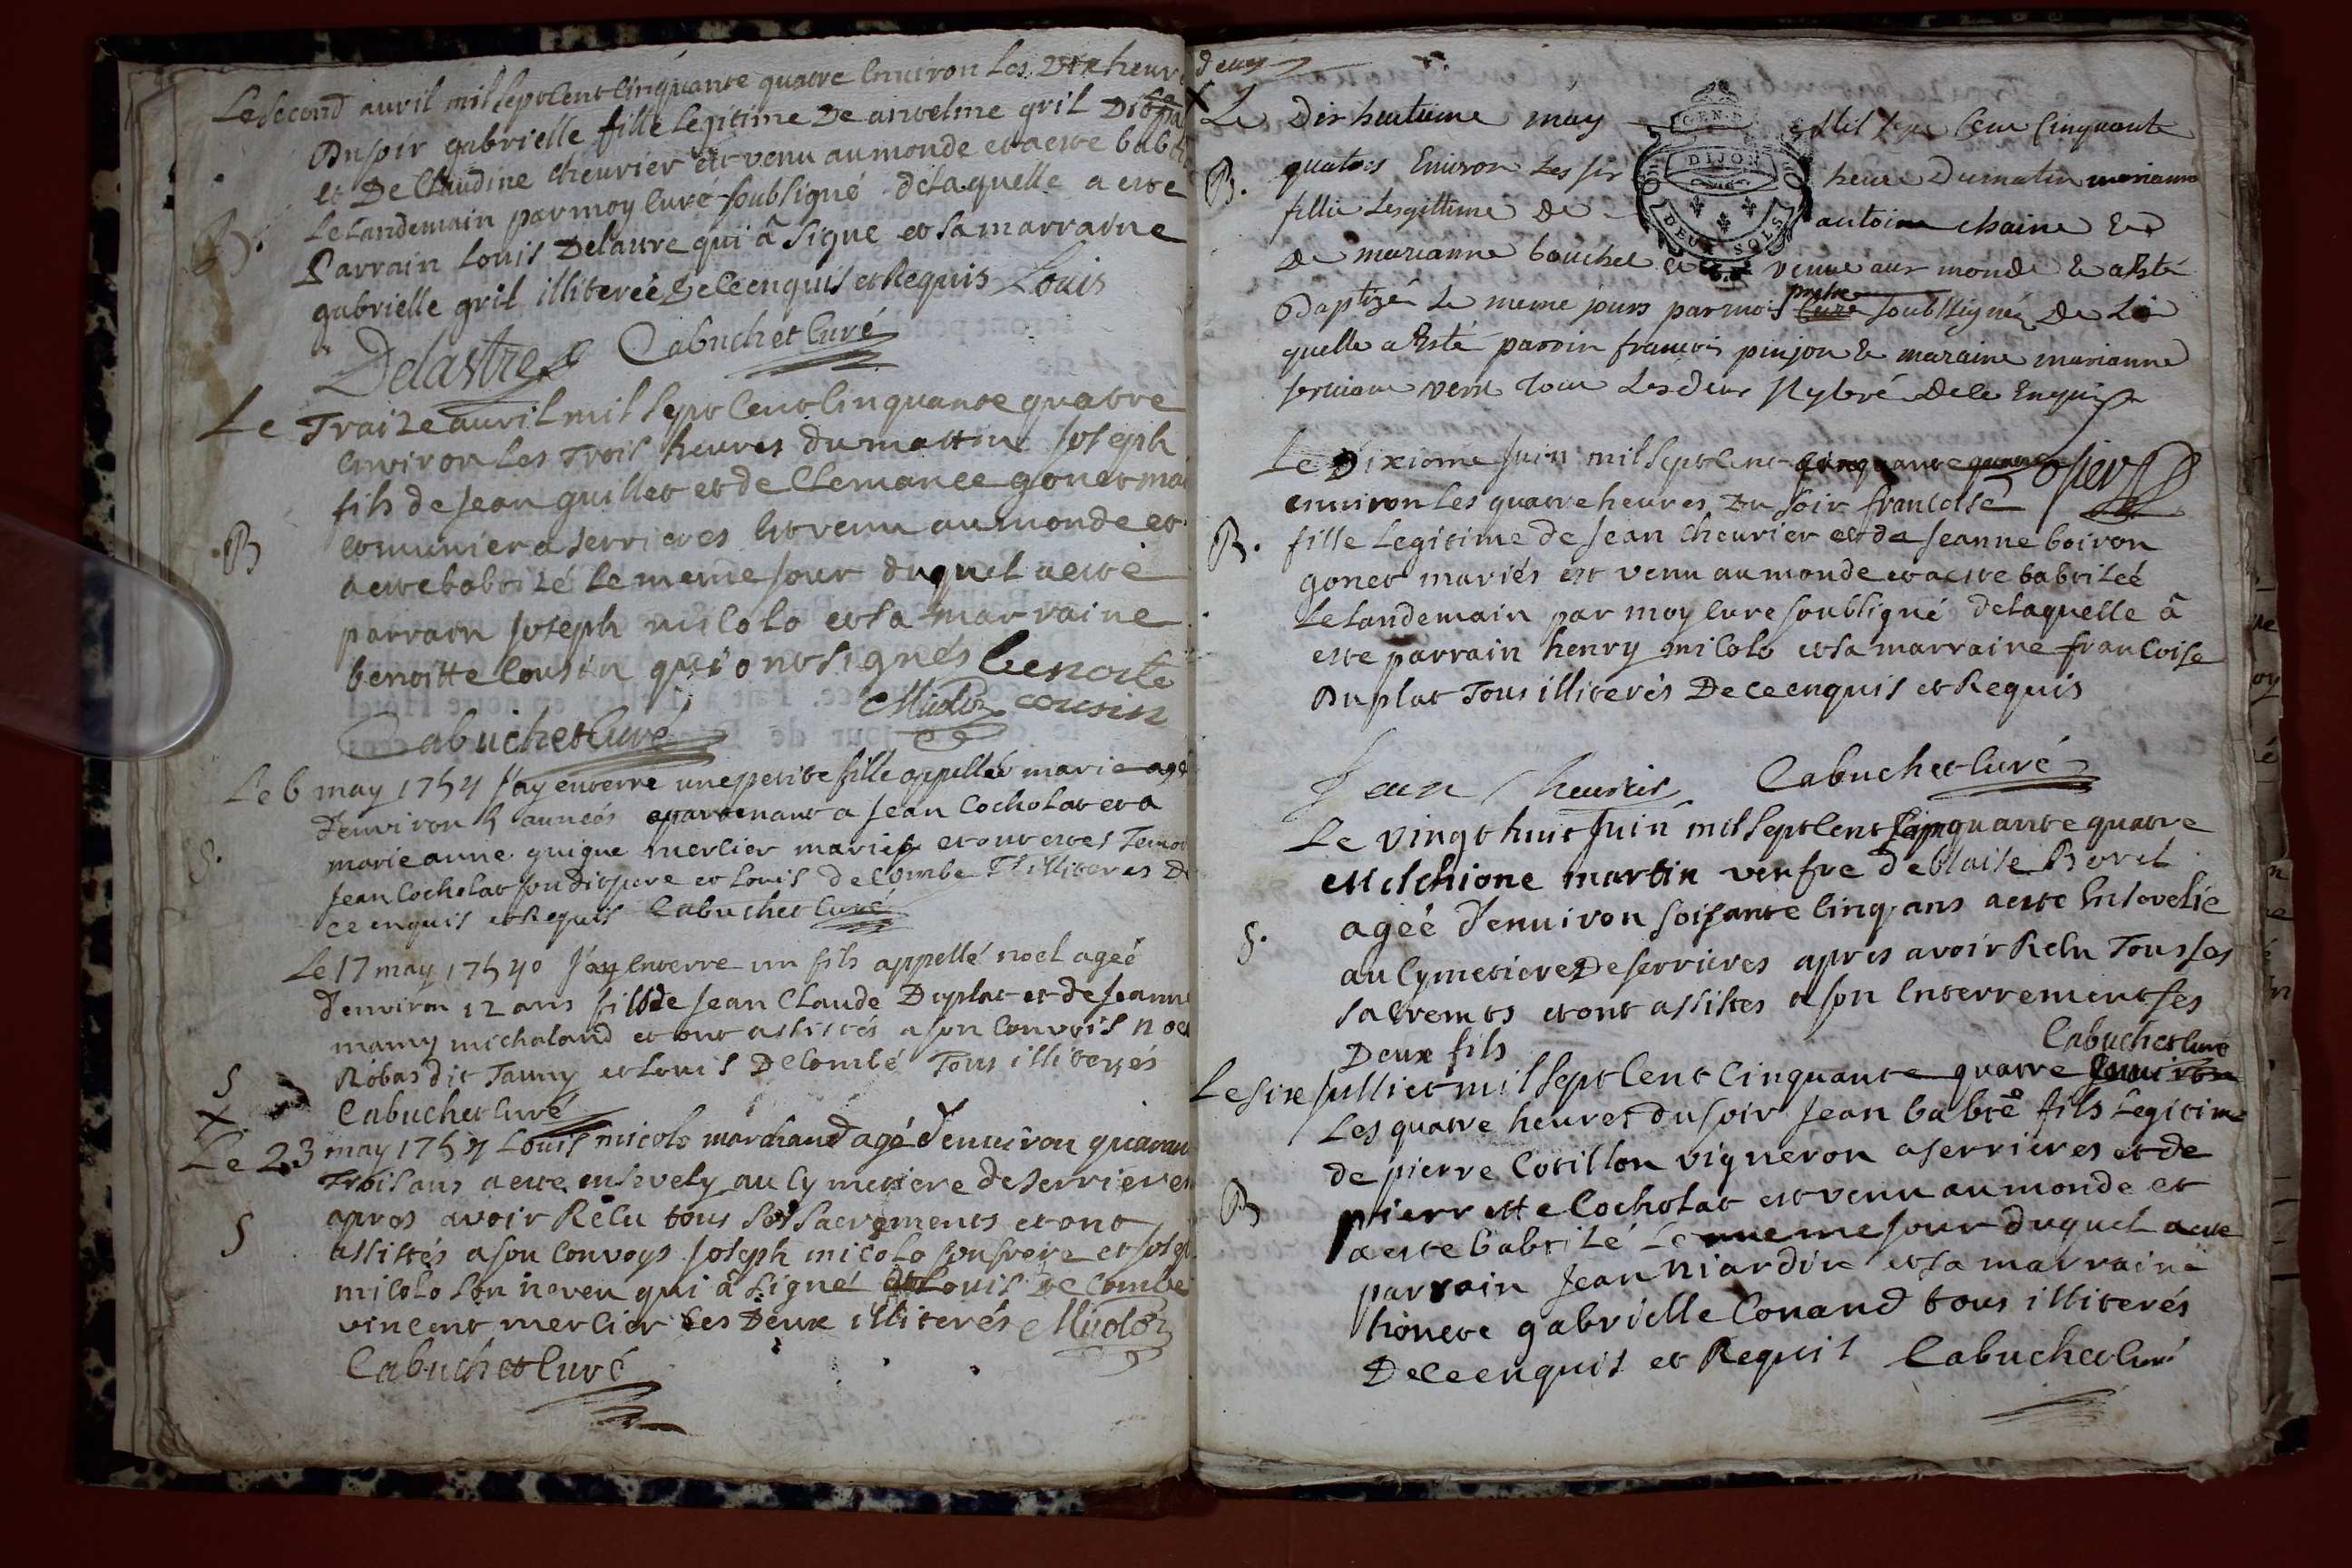 Le second avril mil sept cent cinquante quatre environ les dix heures
B. Du soir gabrielle fille legitime De antelme gril
et De Claudine cheurier est venu au monde et a este babt
le landemain par moy curé soubsigné de laquelle a este
Parrain Louis Delastre qui â signe et sa marraine
gabrielle gril illiterée De ce enquis et Requis Louis
Delastre Cabuchet Curé
Le Traize avril mil sept cent cinquante quatre
environ les trois heures du mattin Joseph
fils de Jean guillet et de Clemance gonet mai
B et munier a serrieres est venu au monde et
a este babtizé le meme jour duquel a esté
parrain Joseph micolo et sa marraine
benoitte cousin qui ont signés benoite
Micolo cousin
Cabuchet Curé
Le 6 may 1754 J'ay enterre une petite fille appellée marie age
d'environ 5 années apartenant a Jean Cocholat et a
S. marie anne guigue mercier mariés et ont estes Temoi
Jean Cocholat son dit pere et Louis decombe Ts illiteres De
ce enquis et Requis Cabuchet Curé
Le 17 may 1754 J'ay enterre un fils appellé noel ageé
d'environ 12 ans fils de Jean Claude Duplat et de Jeanne
mamy michaland et ont assistés a son convois noel
S Robas dit Tanny et Louis Decombe Tous illiterés
Cabuchet Curé
X Le 23 may 1754 Louis micolo marchand agé d'environ quaran
trois ans a este ensevely au cymetiere de serrieres
S apres avoir Recu tous ses sacrements et ont
assistés a son convoys Joseph micolo son frere et Josep
micolo son neveu qui â signé et Louis De Combe
vincent mercier les Deux illiterés Micolo
Cabuchet Curé
deux
X Le Dix huitieme máy Mil sept Cent Cinquante
B. quatres Environ Les six heure Du matin marianne
fillie Legittime De antoine chaine Et
De marianne bouchet et venue aux monde Et a Esté
Baptizée Le meme jours par mois prestre Curé soubssigné De La
quelle a Esté parrin francois pinjon Et maraine marianne
tous Les deux De Ce Enquis
GEN. DIJON DEUX SOLS
Le Dixiome Juin mil sept cent cinquante quatre
environ les quatre heures Du soir francoise
B. fille legitime de Jean cheurier et de Jeanne boiron
gonet mariés est venu au monde et a este babtiseé
le landemain par moy cure soubsigné de laquelle â
este parrain henry micolo et sa marraine francoise
Duplat Tous illiterés De ce enquis et Requis
Jean Cheurier Cabuchet Curé
Le vingt huit Juin mil sept cent cinquante quatre
est martin veufve de blaise Boret
S. ageé d'environ soixante cinq ans a este Ensevelie
au cymetiere De serrieres apres avoir Recu Tous ses
sacremts et ont assistes a son enterrement ses
Deux fils Cabuchet Curé
Le six julliet mil sept cent cinquante quatre Environ
Les quatre heures du soir Jean babte fils legitime
de pierre Cotillon vigneron a serrieres et de
B pierrette Cocholat est venu au monde et
a este babtizé le meme jour duquel a este
parrain Jean niardin et sa marraine
honete gabrielle Conand tous illiterés
De ce enquis et Requis Cabuchet Curé